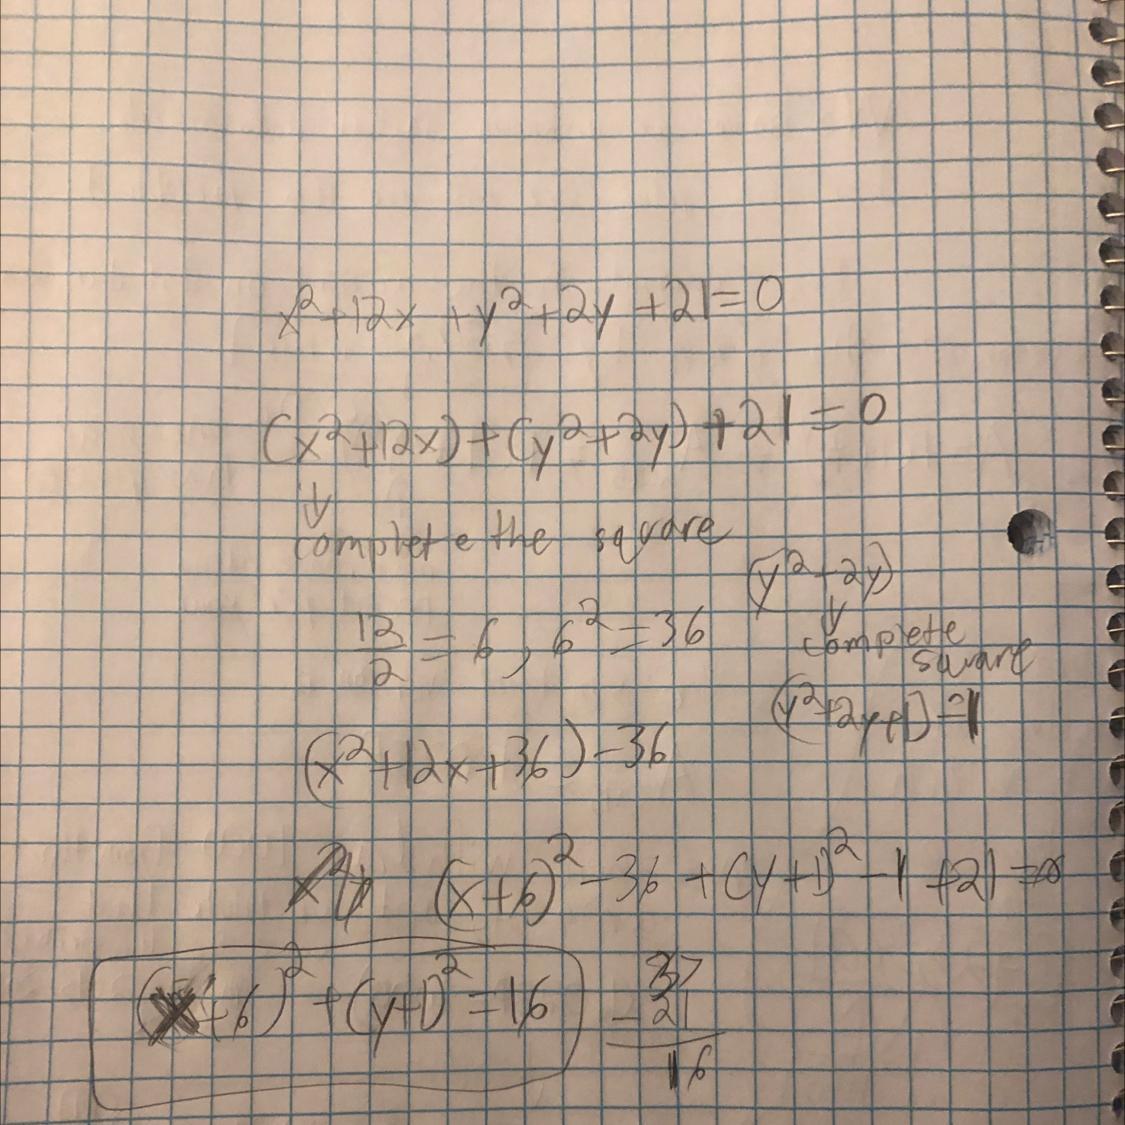 x²+12x +y²+2y +21=0
(x²+12x)+(y²+2y)+21=0
↓
complete the square
(y²+2y)
↓
complete
square
12/2 = 6, 6²=36
(y²+2y+1)-1
(x²+12x+36)-36
(x+6)²-36+(y+1)²-1+21=0
(x+6)²+(y+1)²=16
37
-21
16